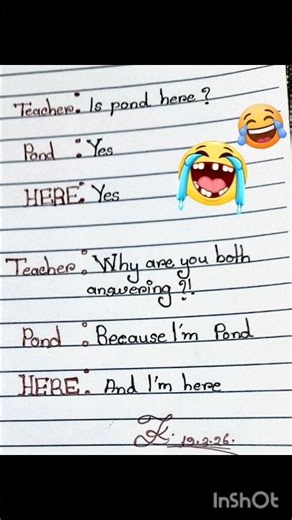 Teacher: Is pond here?
Pond : Yes
HERE: Yes
Teacher: Why are you both
answering?!
Pond : Because I'm Pond
HERE: And I'm here
19.3.26.
InShOt